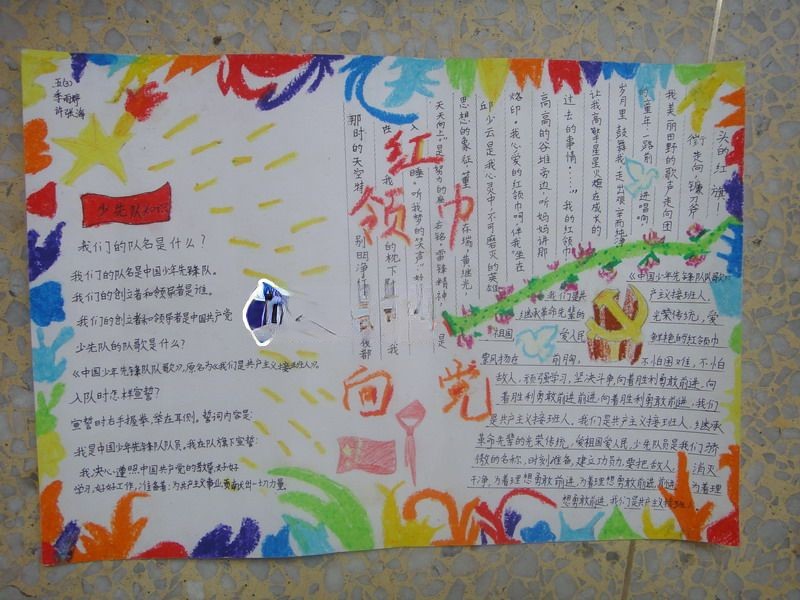 五(3)
李雨婷
许张海
少先队知识
我们的队名是什么?
我们的队名是中国少年先锋队。
我们的创立者和领导者是谁。
我们的创立者和领导者是中国共产党
少先队的队歌是什么?
《中国少年先锋队队歌》,原名为《我们是共产主义接班人》。
入队时怎样宣誓?
宣誓时右手握拳,举在耳侧。誓词内容是:
我是中国少年先锋队队员,我在队旗下宣誓:
我决心遵照中国共产党的教导,好好
学习,好好工作,准备着:为共产主义事业,贡献出一切力量
红领巾
向党
头的红旗!
街走向,镰刀斧
我美丽田野的歌声走向团
的童年一路前进唱响,
岁月里,鼓舞我走出艰辛而纯净
让我高擎手星星火炬在成长的
过去的事情……”我的红领巾
高高的谷堆旁边,听妈妈讲那
烙印。我心爱的红领巾呵伴我“坐在
邱少云是我心灵中不可磨灭的英雄
思想的象征,董在瑞,黄继光,
天天向上”是努力的座右铭,雷锋精神,是
那时的天空特别明净
《中国少年先锋队队歌》
我们是共产主义接班人,
继承革命先辈的光荣传统,爱
祖国爱人民鲜艳的红领巾
飘扬在前胸,不怕困难,不怕
敌人,顽强学习,坚决斗争向着胜利勇敢前进,向
着胜利勇敢前进前进,向着胜利勇敢前进,我们
是共产主义接班人。我们是共产主义接班人,继承
革命先辈的光荣传统,爱祖国爱人民,少先队员是我们骄
傲的名称,时刻准备,建立功劳,要把敌人,消灭
干净,为着理想勇敢前进,为着理想勇敢前进前进,为着理
想勇敢前进,我们是共产主义接班人。